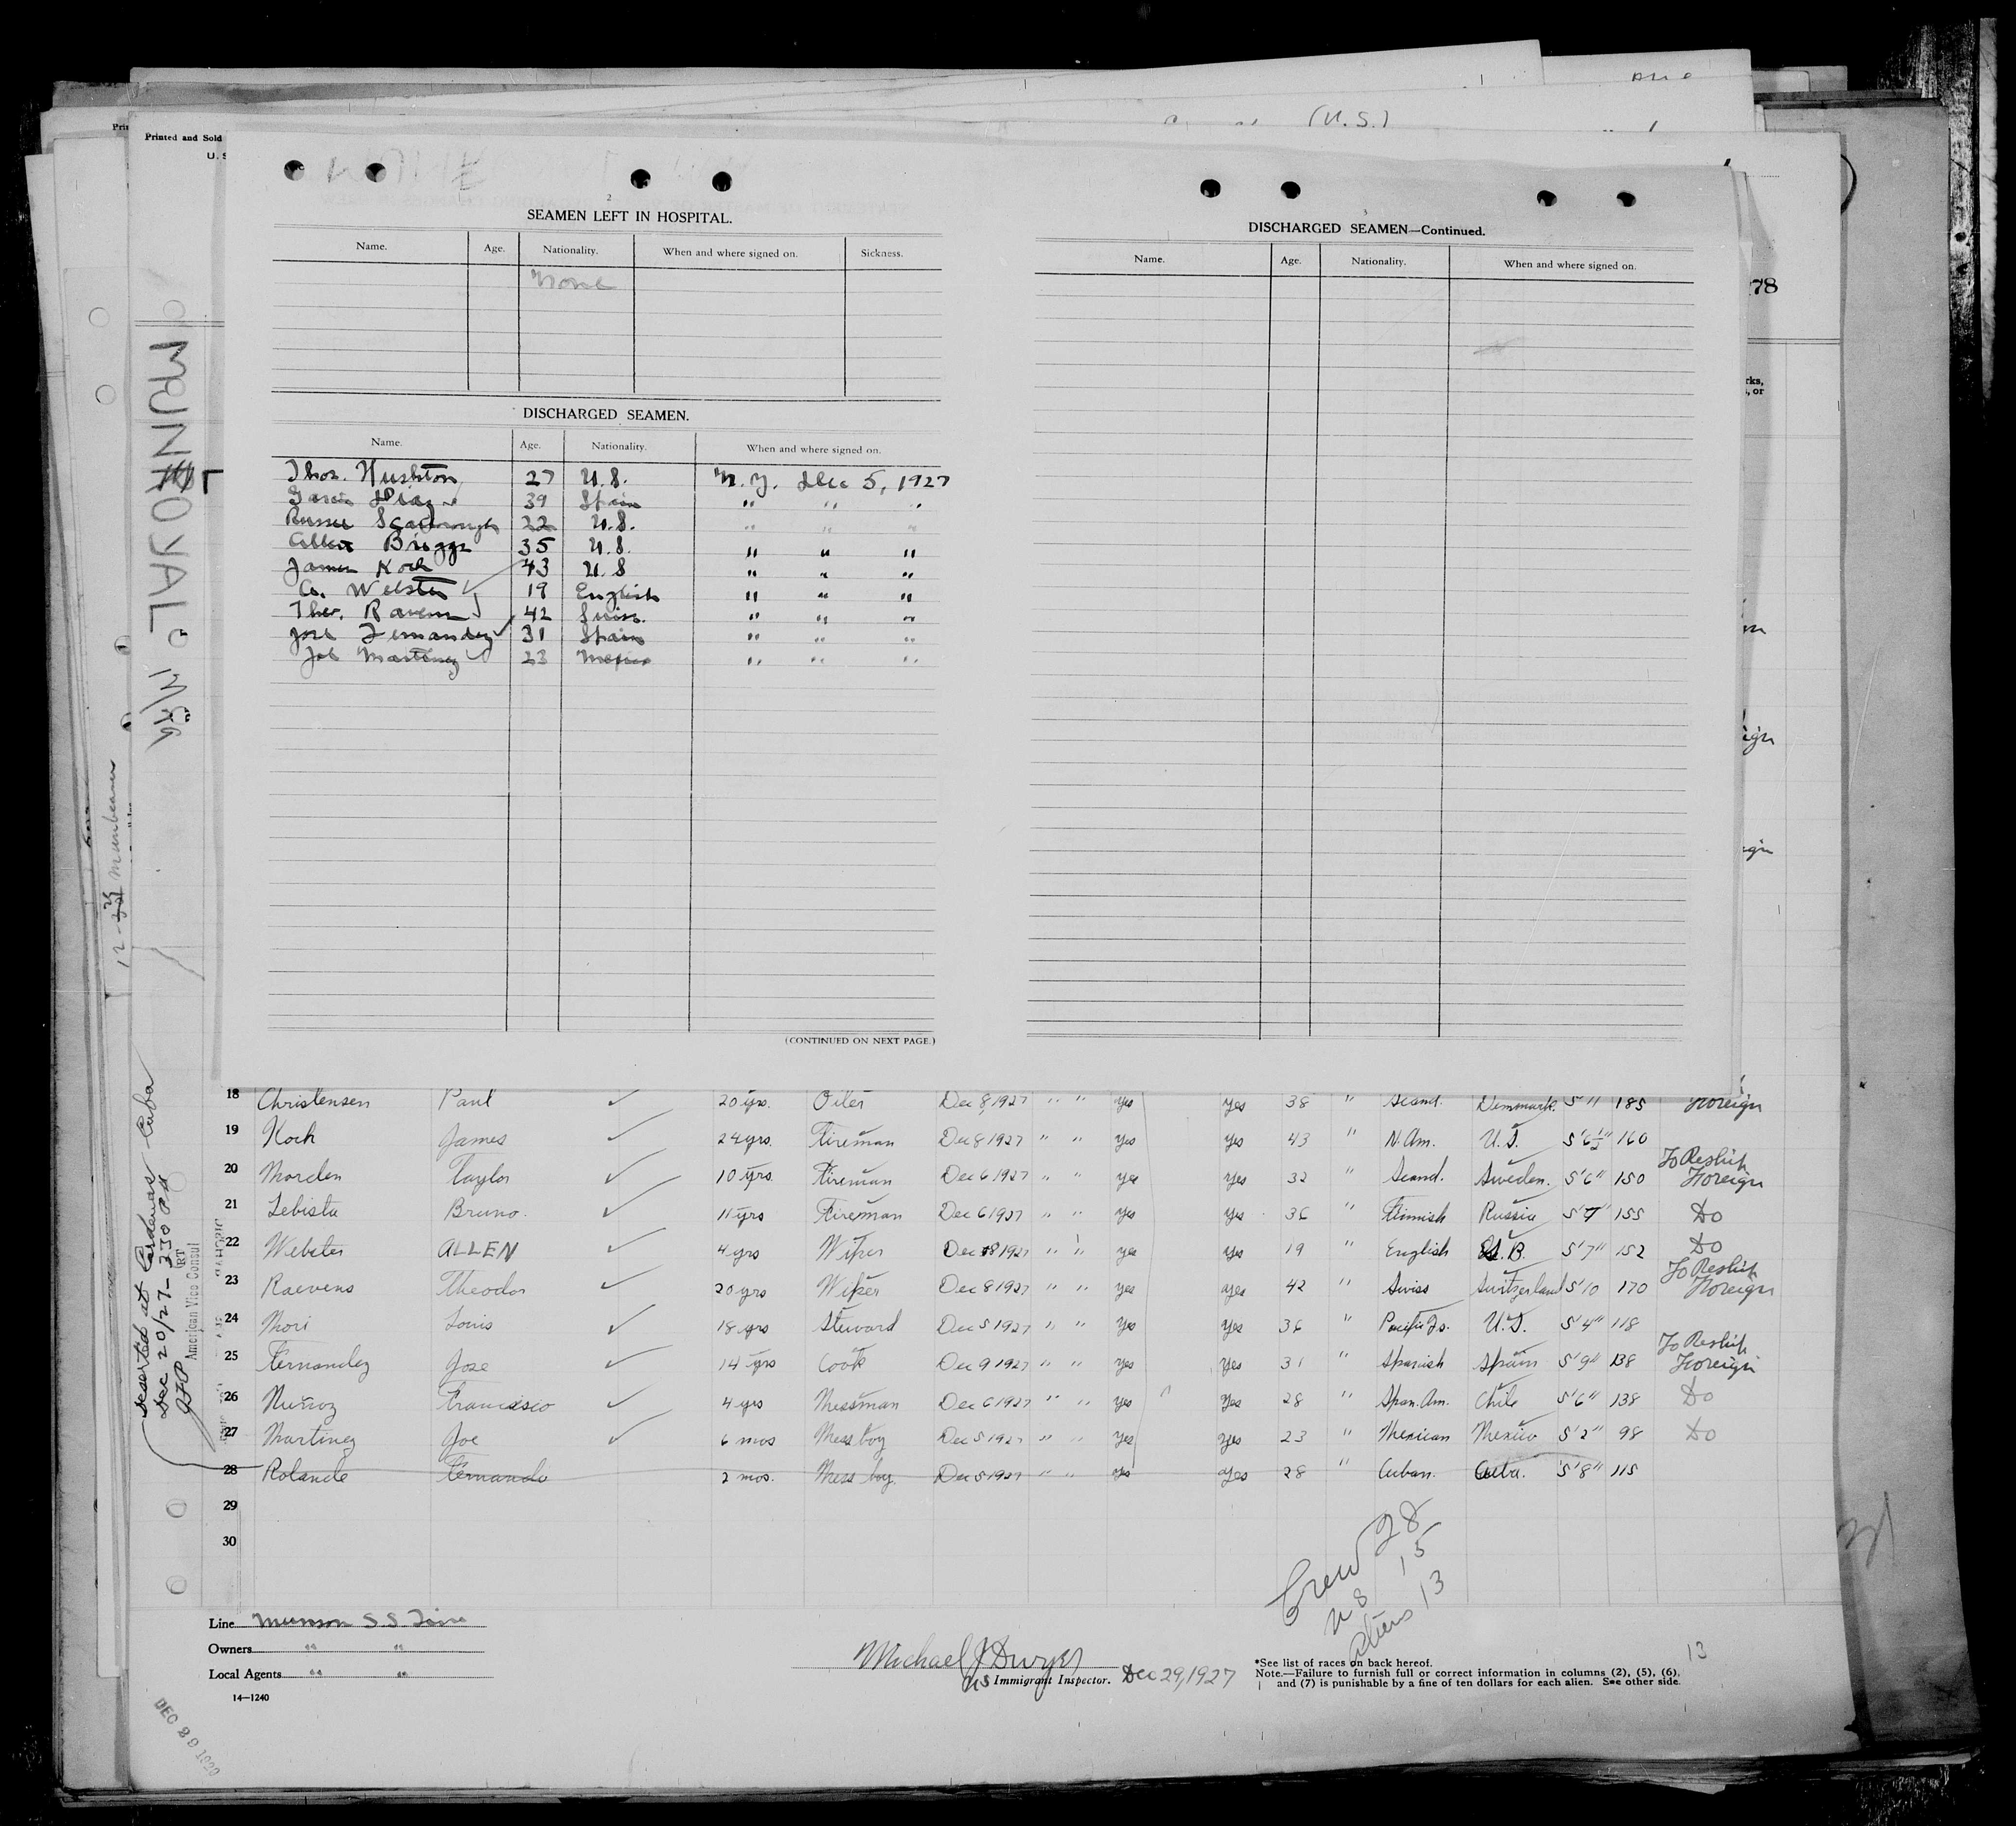 (U.S.)
Printed and Sold
U. S
278
rks,
, or
MUNROYAL
2
SEAMEN LEFT IN HOSPITAL.
Name. Age. Nationality. When and where signed on. Sickness.
None
DISCHARGED SEAMEN.
Name. Age. Nationality. When and where signed on.
Thos. Hushton 27 U.S. N.Y. Dec 5, 1927
Garcia Diaz 39 Spain " " "
Russel Scarbrough 22 U.S. " " "
Albert Briggs 35 U.S. " " "
James Koch 43 U.S " " "
Webster 19 English " " "
Theo. Ravens 42 Swiss. " " "
Jose Fernandez 31 Spain " " "
Joe Martinez 23 Mexico " " "
(CONTINUED ON NEXT PAGE.)
3
DISCHARGED SEAMEN—Continued.
Name. Age. Nationality. When and where signed on.
18 Christensen Paul 20 yrs. Oiler Dec 8 1927 " " yes yes 38 " Scand. Denmark. 5' 11 185 Foreign
19 Koch James 24 yrs. Fireman Dec 8 1927 " " yes yes 43 " N. Am. U.S. 5' 6½" 160
20 Morden Taylor 10 yrs. Fireman Dec 6 1927 " " yes yes 32 " Scand. Sweden. 5' 6" 150 To Reship Foreign
21 Lebista Bruno. 11 yrs Fireman Dec 6 1927 " " yes yes 36 " Finnish Russia 5' 7" 155 Do
22 Webster ALLEN 4 yrs Wiper Dec 8 1927 " " yes yes 19 " English G.B. 5' 7" 152 Do
23 Raevens Theodor 20 yrs Wiper Dec 8 1927 " " yes yes 42 " Swiss Switzerland 5' 10 170 To Reship Foreign
24 Mori Louis 18 yrs Steward Dec 5 1927 " " yes yes 36 " Pacific Is. U.S. 5' 4" 118
25 Fernandez Jose 14 yrs Cook Dec 9 1927 " " yes yes 31 " Spanish Spain 5' 9" 138 To Reship Foreign
26 Muñoz Francisco 4 yrs Messman Dec 6 1927 " " yes yes 28 " Span. Am. Chile 5' 6" 138 Do
27 Martinez Joe 6 mos Mess boy Dec 5 1927 " " yes yes 23 " Mexican Mexico 5' 2" 98 Do
28 Rolande Fernando 2 mos. Mess boy Dec 5 1927 " " yes yes 28 " Cuban. Cuba. 5' 8" 115
29
30
Deserted at Cardenas - Cuba
Dec 20/27 - 330 PM
American Vice Consul
12 - 29 Munbeaver
Crew 28
US 15
Aliens 13
Line Munson S.S. Line
Owners " "
Local Agents " "
14—1240
Michael J Dwyer
US Immigrant Inspector. Dec 29, 1927
13
*See list of races on back hereof.
Note.—Failure to furnish full or correct information in columns (2), (5), (6),
and (7) is punishable by a fine of ten dollars for each alien. See other side.